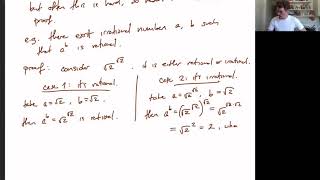 but often this is hard, so
proof.
e.g. there exist irrational numbers a, b such
that a^b is rational.
proof: consider √2^√2. it is either rational or irrational.
case 1: it's rational.
take a=√2, b=√2.
then a^b = √2^√2 is rational.
case 2: it's irrational.
take a=√2^√2, b=√2
then a^b = (√2^√2)^√2 = √2^√2·√2
= √2^2 = 2, whi